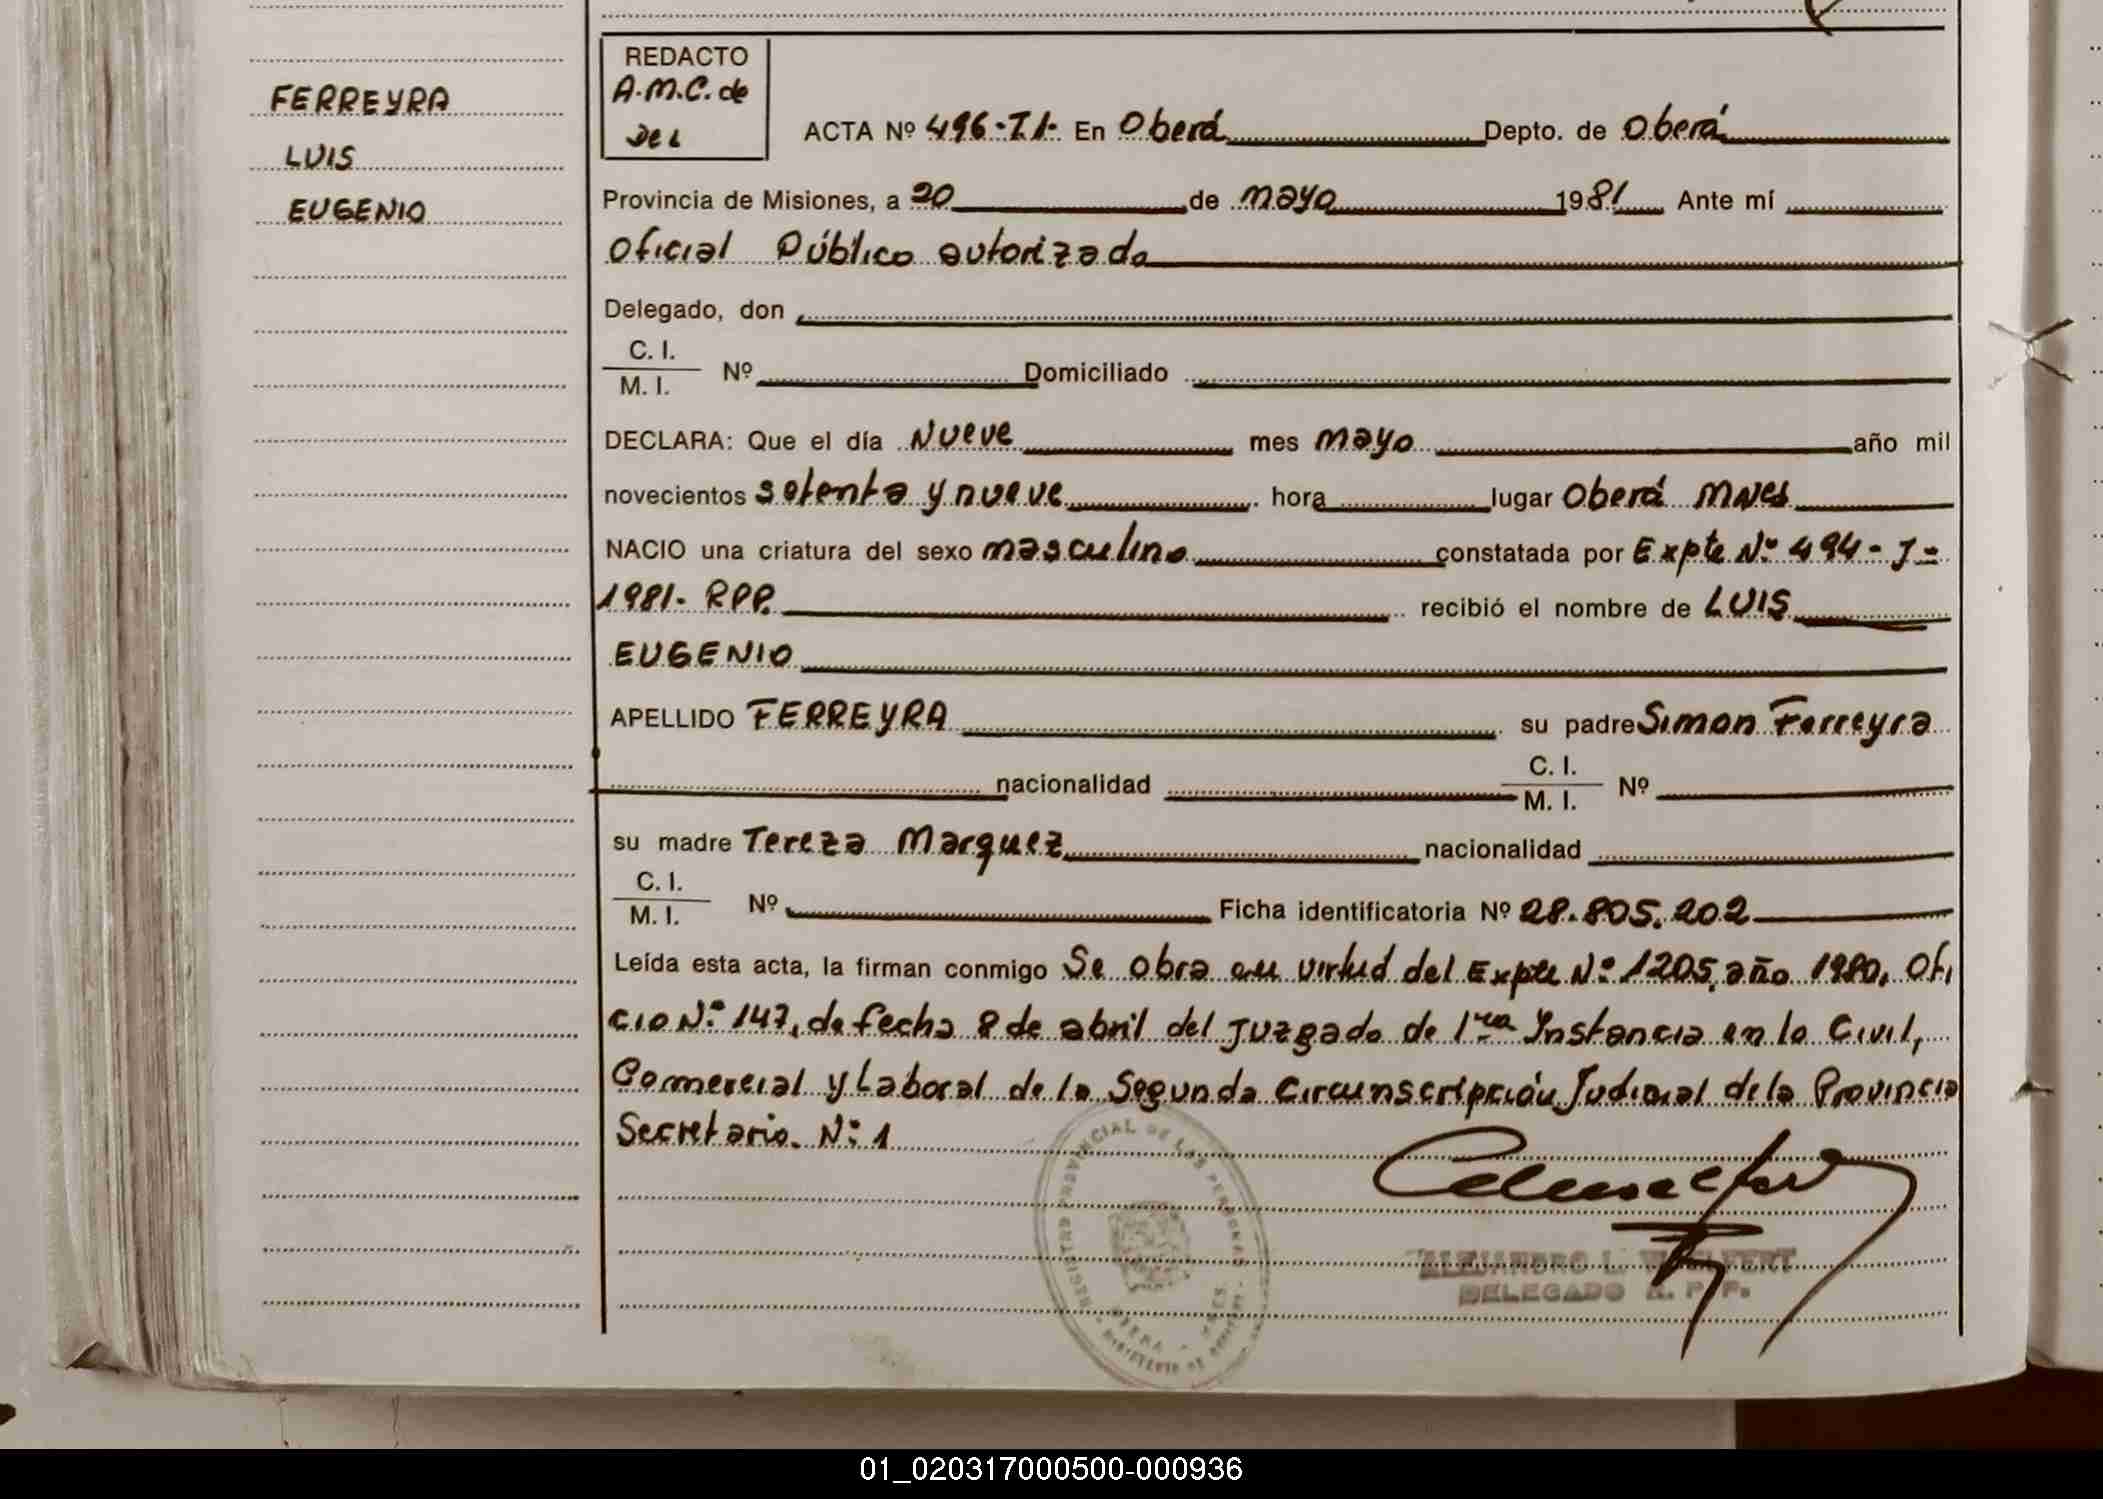 FERREYRA
LUIS
EUGENIO
REDACTO
A.M.C. de
DEL
ACTA Nº 496-T1- En Oberá Depto. de Oberá
Provincia de Misiones, a 20 de mayo 1981 Ante mí
Oficial Público autorizado
Delegado, don
C. I.
M. I. Nº Domiciliado
DECLARA: Que el día Nueve mes mayo año mil
novecientos setenta y nueve hora lugar Oberá Mnes
NACIO una criatura del sexo masculino constatada por Expte Nº 494- J-
1981- RPP. recibió el nombre de LUIS
EUGENIO
APELLIDO FERREYRA su padre Simon Ferreyra
nacionalidad C. I.
M. I. Nº
su madre Tereza Marquez nacionalidad
C. I.
M. I. Nº Ficha identificatoria Nº 28.805.202
Leída esta acta, la firman conmigo Se obra en virtud del Expte Nº 1205, año 1980, Ofi
cio Nº 147, de fecha 8 de abril del Juzgado de 1ra Instancia en lo Civil,
Comercial y Laboral de la Segunda Circunscripción Judicial de la Provincia
Secretario. Nº 1
REGISTRO PROVINCIAL DE LAS PERSONAS
ALEJANDRO L.
DELEGADO R. P. P.
01_020317000500-000936